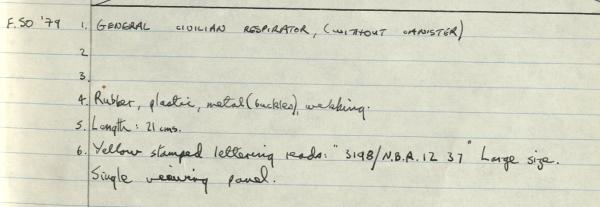 F.50 '79 1. GENERAL CIVILIAN RESPIRATOR, (WITHOUT CANISTER)
2
3.
4. Rubber, plastic, metal (buckles), webbing.
5. Length: 21 cms.
6. Yellow stamped lettering reads: "3198/N.B.A. 12 37" Large size.
Single viewing panel.